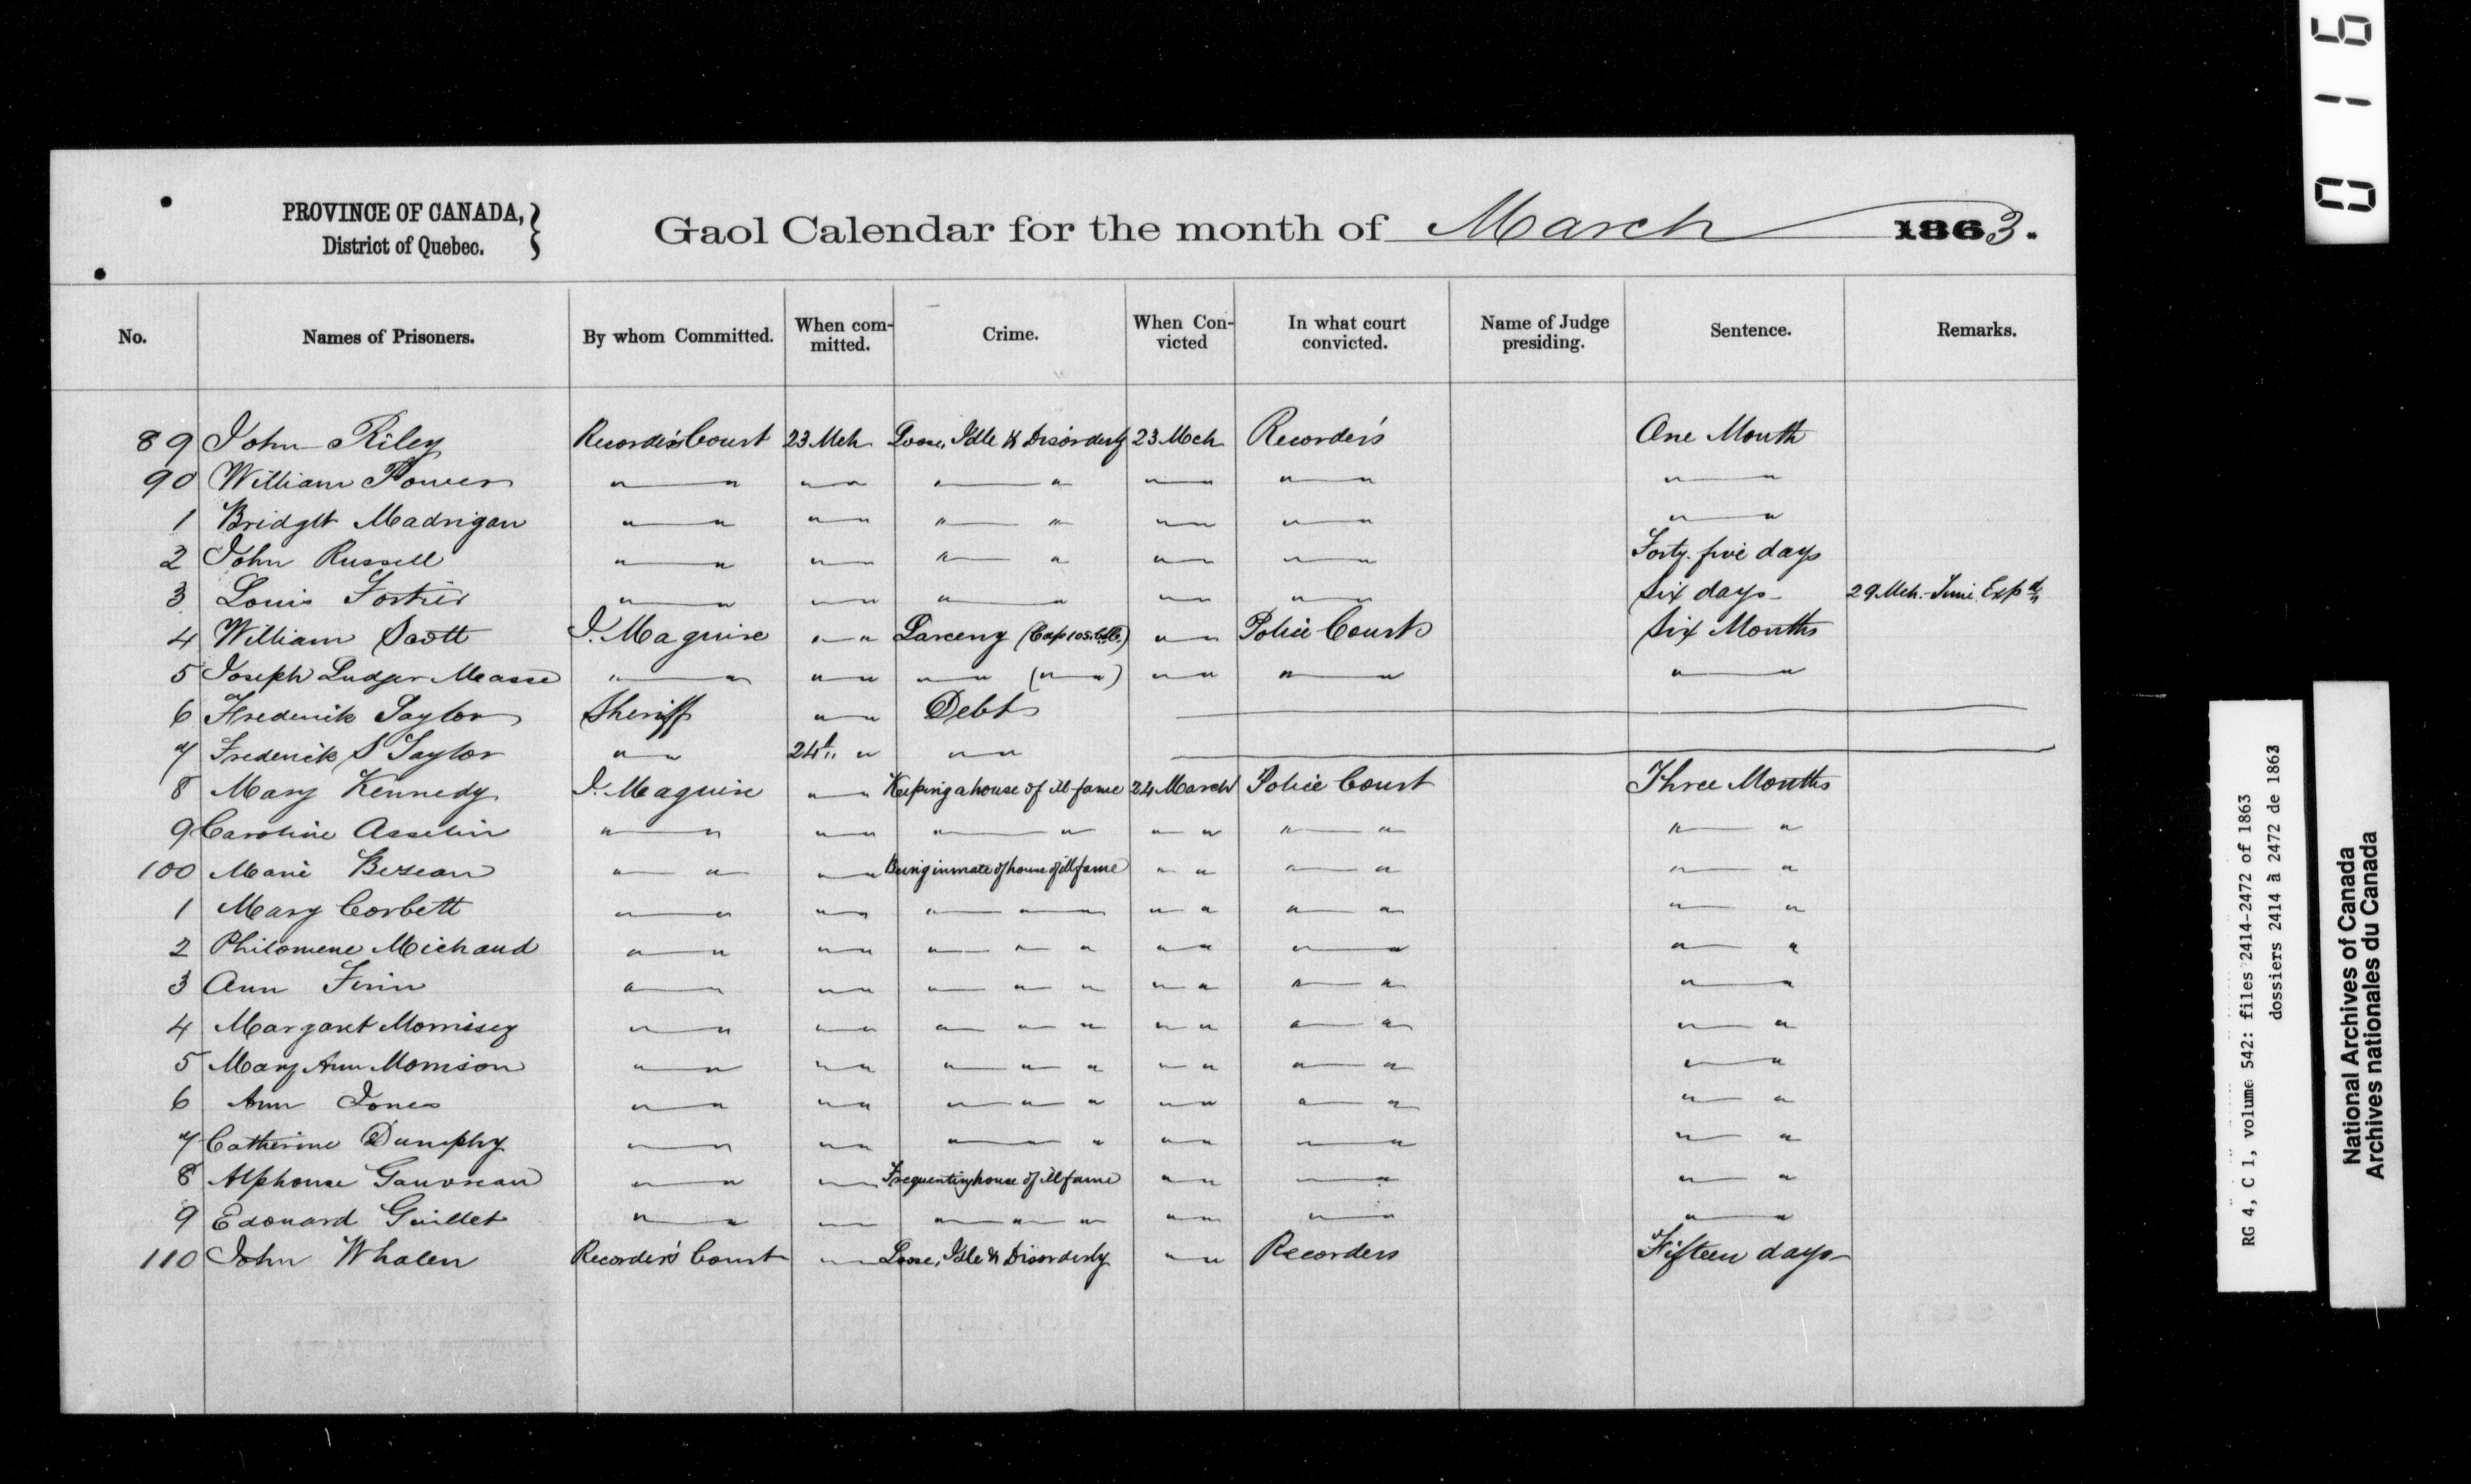 PROVINCE OF CANADA,
District of Quebec.
Gaol Calendar for the month of March 1863.
No. Names of Prisoners. By whom Committed. When committed. Crime. When Convicted In what court convicted. Name of Judge presiding. Sentence. Remarks.
89 John Riley Recorder's Court 23 Mch Loose, Idle & Disorderly 23 Mch Recorder's One Month
90 William Power " " " " " " " " " " " "
1 Bridget Madrigan " " " " " " " " " " " "
2 John Russell " " " " " " " " " " Forty-five days
3 Louis Fortier " " " " " " " " " " Six days 29 Mch. Time Exp
4 William Scott J. Maguire " " Larceny (Cap 105 ) " " Police Court Six Months
5 Joseph Ludger Masse " " " " " " (" ") " " " " " "
6 Frederick Taylor Sheriff " " Debt
7 Frederick S Taylor " " 24th " " "
8 Mary Kennedy J. Maguire " " Keeping a house of ill fame 24 March Police Court Three Months
9 Caroline Asselin " " " " " " " " " " " "
100 Marie Bezeau " " " " Being inmate of house of ill fame " " " " " "
1 Mary Corbett " " " " " " " " " " " "
2 Philomene Michaud " " " " " " " " " " " " "
3 Ann Finn " " " " " " " " " " " " "
4 Margaret Morrisey " " " " " " " " " " " " "
5 Mary Ann Morrison " " " " " " " " " " " " "
6 Ann Jones " " " " " " " " " " " " "
7 Catherine Dunphy " " " " " " " " " " " "
8 Alphonse Gauvreau " " " " Frequenting house of ill fame " " " " " "
9 Edouard Guillet " " " " " " " " " " " " "
110 John Whalen Recorder's Court " " Loose, Idle & Disorderly " " Recorders Fifteen days
016
RG 4, C 1, volume 542: files 2414-2472 of 1863
dossiers 2414 à 2472 de 1863
National Archives of Canada
Archives nationales du Canada